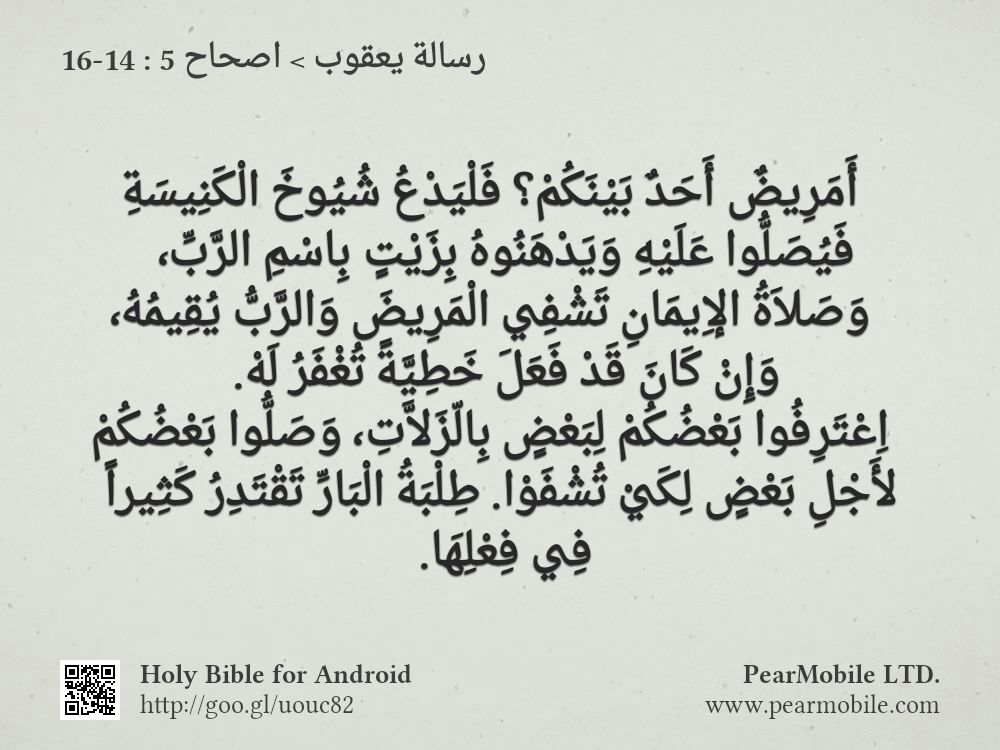 رسالة يعقوب > اصحاح 5 : 14-16
أَمَرِيضٌ أَحَدٌ بَيْنَكُمْ؟ فَلْيَدْعُ شُيُوخَ الْكَنِيسَةِ
فَيُصَلُّوا عَلَيْهِ وَيَدْهَنُوهُ بِزَيْتٍ بِاسْمِ الرَّبِّ،
وَصَلاَةُ الإِيمَانِ تَشْفِي الْمَرِيضَ وَالرَّبُّ يُقِيمُهُ،
وَإِنْ كَانَ قَدْ فَعَلَ خَطِيَّةً تُغْفَرُ لَهُ.
اِعْتَرِفُوا بَعْضُكُمْ لِبَعْضٍ بِالّزَلاَّتِ، وَصَلُّوا بَعْضُكُمْ
لأَجْلِ بَعْضٍ لِكَيْ تُشْفَوْا. طِلْبَةُ الْبَارِّ تَقْتَدِرُ كَثِيراً
فِي فِعْلِهَا.
Holy Bible for Android
http://goo.gl/uouc82
PearMobile LTD.
www.pearmobile.com